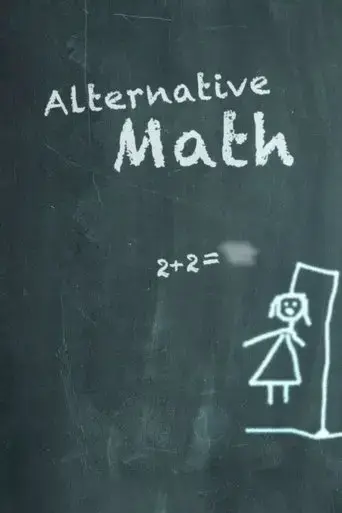 Alternative
Math
2+2=